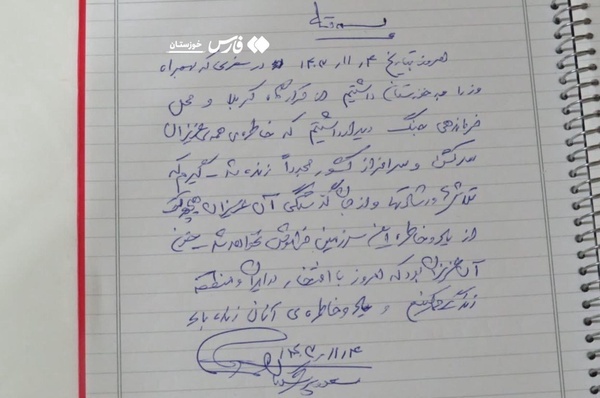 بسمه تعالی
فارس خوزستان
امروز بتاریخ ۱۴۰۳/۱۱/۴ در سفری که همراه
وزرا به خوزستان داشتیم از قرارگاه کربلا و محل
فرماندهی جنگ دیدار داشتیم که خاطره‌ی همه‌ی عزیزان
سرکش و سرافراز کشور مجدداً زنده شد
تلاش‌ها و رشادتها و از جان گذشتگی آن عزیزان هیچوقت
از یاد و خاطره این سرزمین فراموش نخواهد شد
آن عزیزان بود که امروز با افتخار در ایران و منطقه
زندگی می‌کنیم و یاد و خاطره‌ی آنان زنده باید
۱۴۰۳/۱۱/۴
مسعود پزشکیان